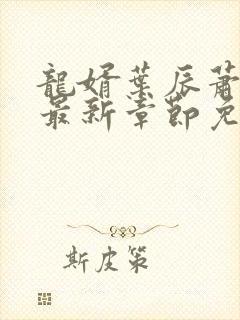 龍婿葉辰蕭
最新章節免
斯皮策